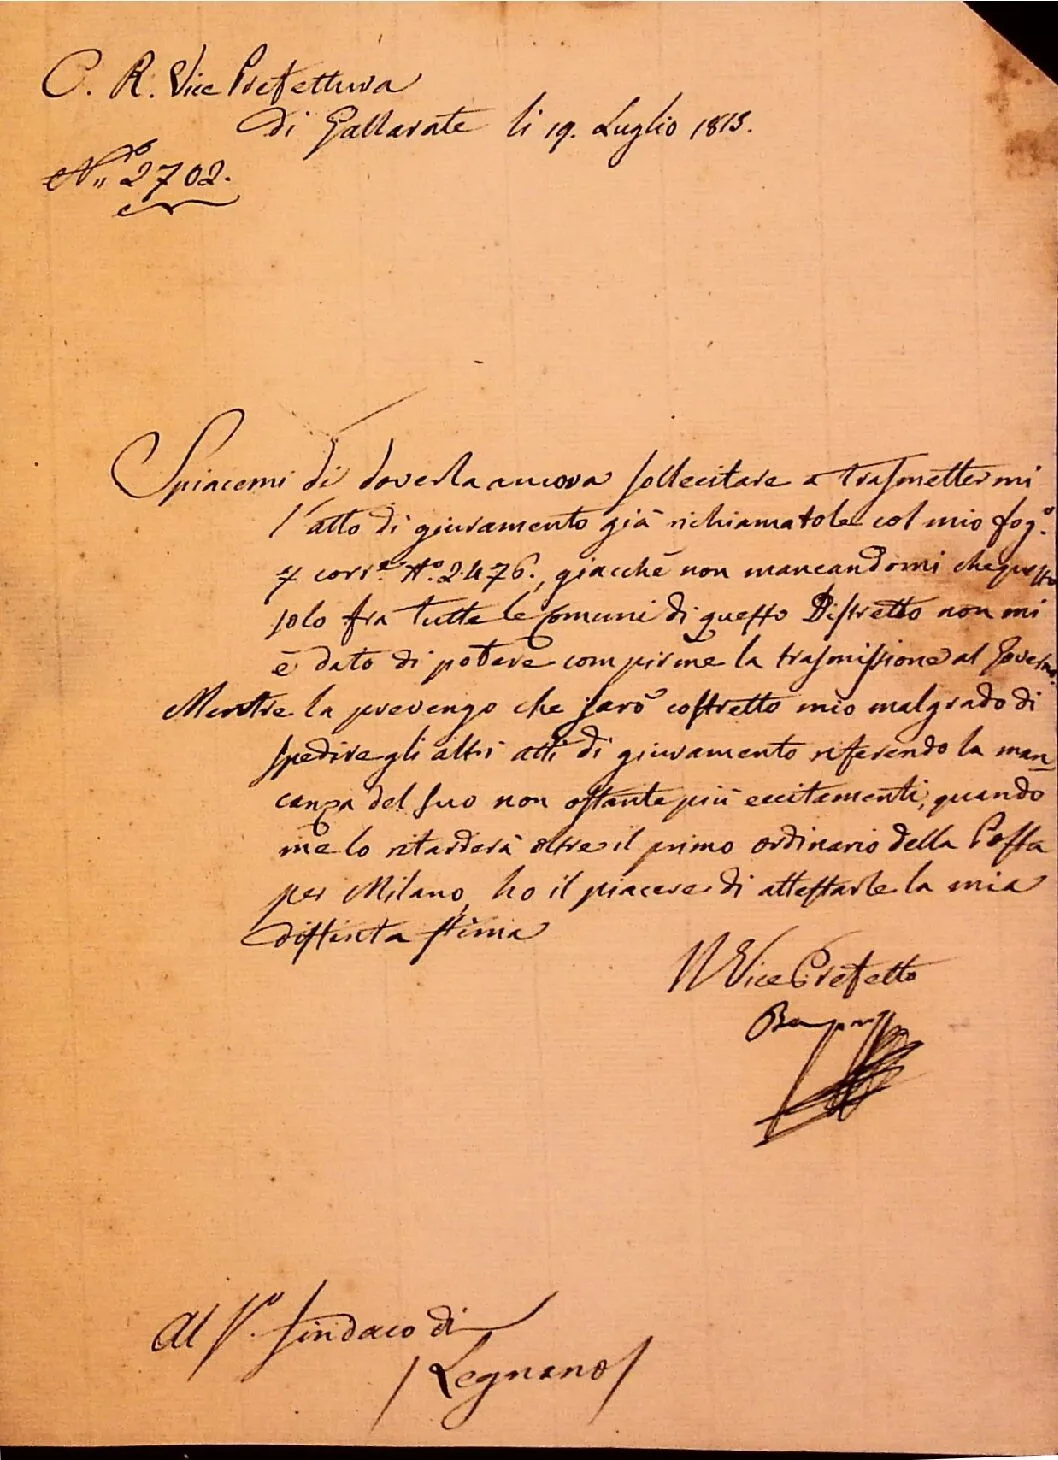 C. R. Vice Prefettura
di Gallarate li 19. Luglio 1815.
N.° 2702.
Spiacemi di doverla ancora sollecitare a trasmettermi
l'atto di giuramento già richiamatole col mio fog.°
7 corr.e N.° 2476., giacchè non mancandomi che questo
solo fra tutte le Comuni di questo Distretto non mi
è dato di potere compirne la trasmissione al Governo.
Mentre la prevengo che sarò costretto mio malgrado di
spedire gli altri atti di giuramento riferendo la man
canza del suo non ostante più eccitamenti, quando
me lo ritarderà oltre il primo ordinario della Posta
per Milano, ho il piacere di attestarle la mia
distinta stima
Il Vice Prefetto
Al S.r Sindaco di
Legnano